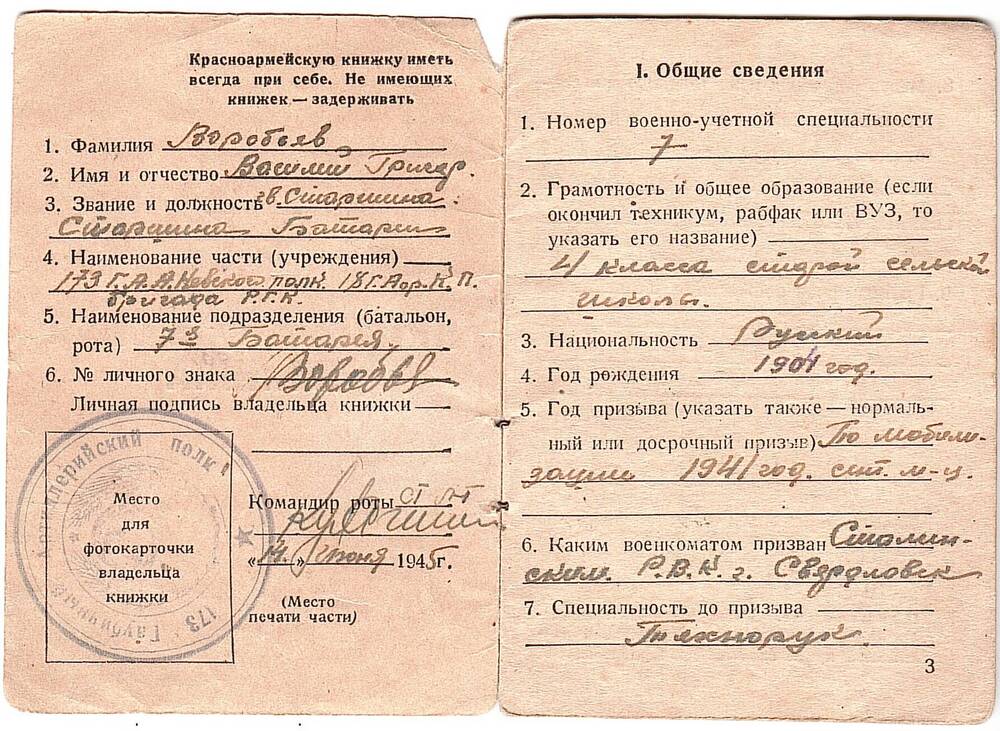 Красноармейскую книжку иметь
всегда при себе. Не имеющих
книжек — задерживать
1. Фамилия Воробьев
2. Имя и отчество Василий Григор.
3. Звание и должность гв. Старшина
Старшина Батареи
4. Наименование части (учреждения)
173 Г.А.А.Невского полк. 18 Г.Аор.К.П.
бригада Р.Г.К.
5. Наименование подразделения (батальон,
рота) 7я Батарея
6. № личного знака Воробьев
Личная подпись владельца книжки
Место
для
фотокарточки
владельца
книжки
173 Гаубичный Артиллерийский полк
Командир роты ст л-т
„14“ Июня 1945г.
(Место
печати части)
I. Общие сведения
1. Номер военно-учетной специальности
7
2. Грамотность и общее образование (если
окончил техникум, рабфак или ВУЗ, то
указать его название)
4 класса старой сельской
школы.
3. Национальность Руский
4. Год рождения 1904 год.
5. Год призыва (указать также — нормаль-
ный или досрочный призыв) По мобили-
зации 1941 год. сент. м-ц.
6. Каким военкоматом призван Сталин-
ским Р.В.К. г. Свердловск
7. Специальность до призыва
Технорук
3